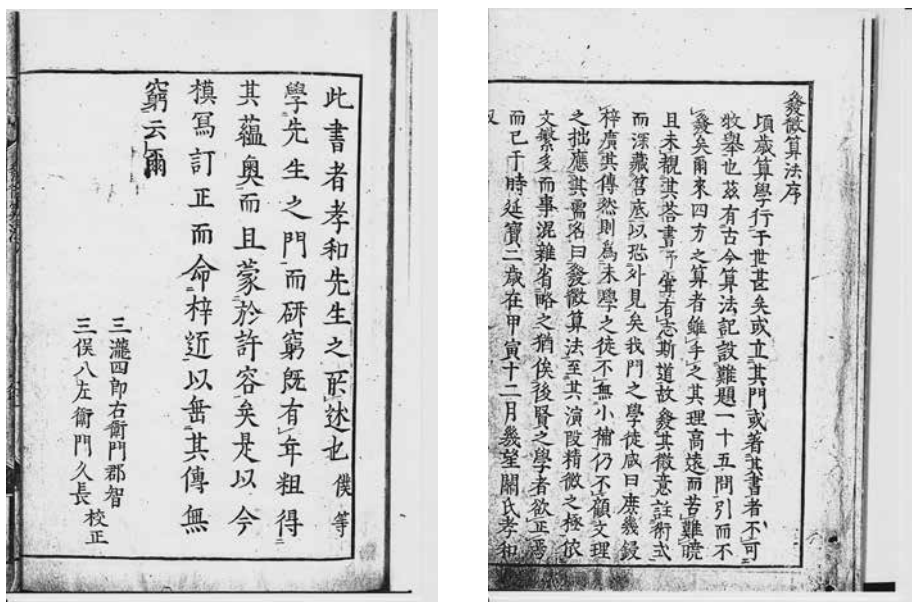 發微算法序
頃歳算學行于世甚矣或立其門或著其書者不可
牧擧也茲有古今算法記設難題一十五問引而不
發矣爾來四方之算者雖手之其理高遠而苦難曉
且未覩其荅書予嘗有志斯道故發其微意註術式
而深藏筐底以恐外見矣我門之學徒咸曰庶幾鋟
梓廣其傳然則爲末學之徒不無小補仍不顧文理
之拙應其需名曰發微算法至其演段精微之極依
文繁多而事混雜省略之猶俟後賢之學者欲正焉
而已于時延寶二歳在甲寅十二月幾望關氏孝和
此書者孝和先生之所述也僕等
學先生之門而研窮既有年粗得
其蘊奥而且蒙於許容矣是以今
模冩訂正而命梓近以垂其傳無
窮云爾
三瀧四郎右衛門郡智
三俣八左衛門久長
校正